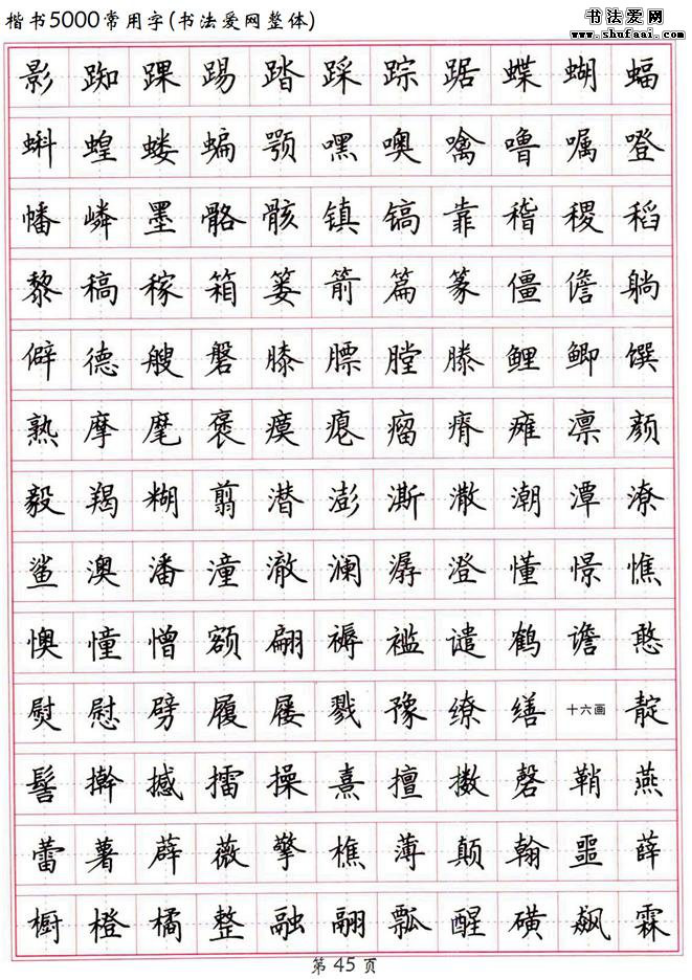 楷书5000常用字(书法爱网整体)
书法爱网
www.shufaai.com
影 踟 踝 踢 踏 踩 踪 踞 蝶 蝴 蝠
蝌 蝗 蝼 蝙 颚 嘿 噢 噙 噜 嘱 噔
幡 嶙 墨 骼 骸 镇 镐 靠 稽 稷 稻
黎 稿 稼 箱 篓 箭 篇 篆 僵 儋 躺
僻 德 艘 磐 膝 膘 膛 滕 鲤 鲫 馔
熟 摩 麾 褒 瘼 瘪 瘤 瘠 瘫 凛 颜
毅 羯 糊 翦 潜 澎 澌 潵 潮 潭 潦
鲨 澳 潘 潼 澈 澜 潺 澄 懂 憬 憔
懊 憧 憎 额 翩 褥 褴 谴 鹤 谵 憨
熨 慰 劈 履 屦 戮 豫 缭 缮 十六画 靛
髻 擀 撼 擂 操 熹 擅 擞 磬 鞘 燕
蕾 薯 薜 薇 擎 樵 薄 颠 翰 噩 薛
橱 橙 橘 整 融 翮 瓢 醒 磺 飙 霖
第 45 页